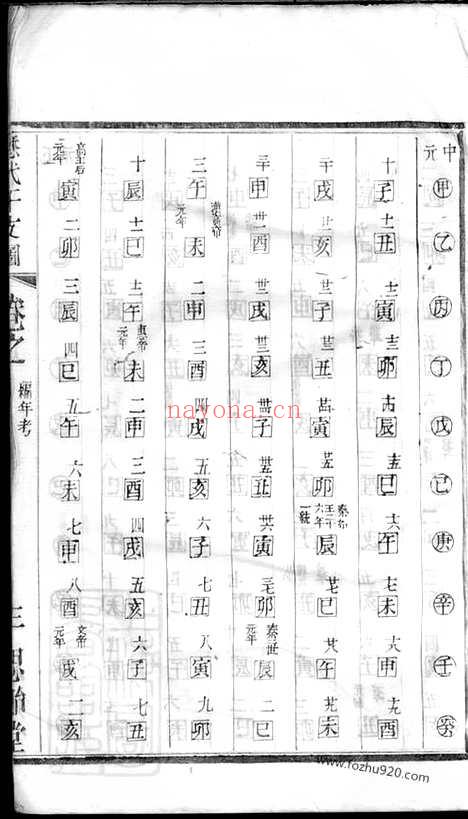 中元 甲 乙 丙 丁 戊 己 庚 辛 壬 癸
十 子 十一 丑 十二 寅 十三 卯 十四 辰 十五 巳 十六 午 十七 未 十八 申 十九 酉
二十 戌 廿一 亥 廿二 子 廿三 丑 廿四 寅 廿五 卯 秦始王二十六年一統 辰 廿七 巳 廿八 午 廿九 未
三十 申 卅一 酉 卅二 戌 卅三 亥 卅四 子 卅五 丑 卅六 寅 卅七 卯 秦二世元年 辰 二 巳
三 午 漢高帝元年 未 二 申 三 酉 四 戌 五 亥 六 子 七 丑 八 寅 九 卯
十 辰 十一 巳 十二 午 惠帝元年 未 二 申 三 酉 四 戌 五 亥 六 子 七 丑
高王后元年 寅 二 卯 三 辰 四 巳 五 午 六 未 七 申 八 酉 文帝元年 戌 二 亥
歷代干支圖 卷之 編年考 三
nayona.cn
www.fozhu920.com